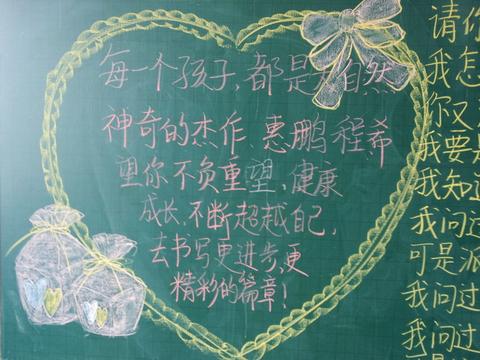 每一个孩子,都是大自然
神奇的杰作,惠鹏程希
望你不负重望,健康
成长,不断超越自己,
去书写更进步,更
精彩的篇章!
请你
我怎
你又
我要
我知
我问过
可是派
我问过
我问过